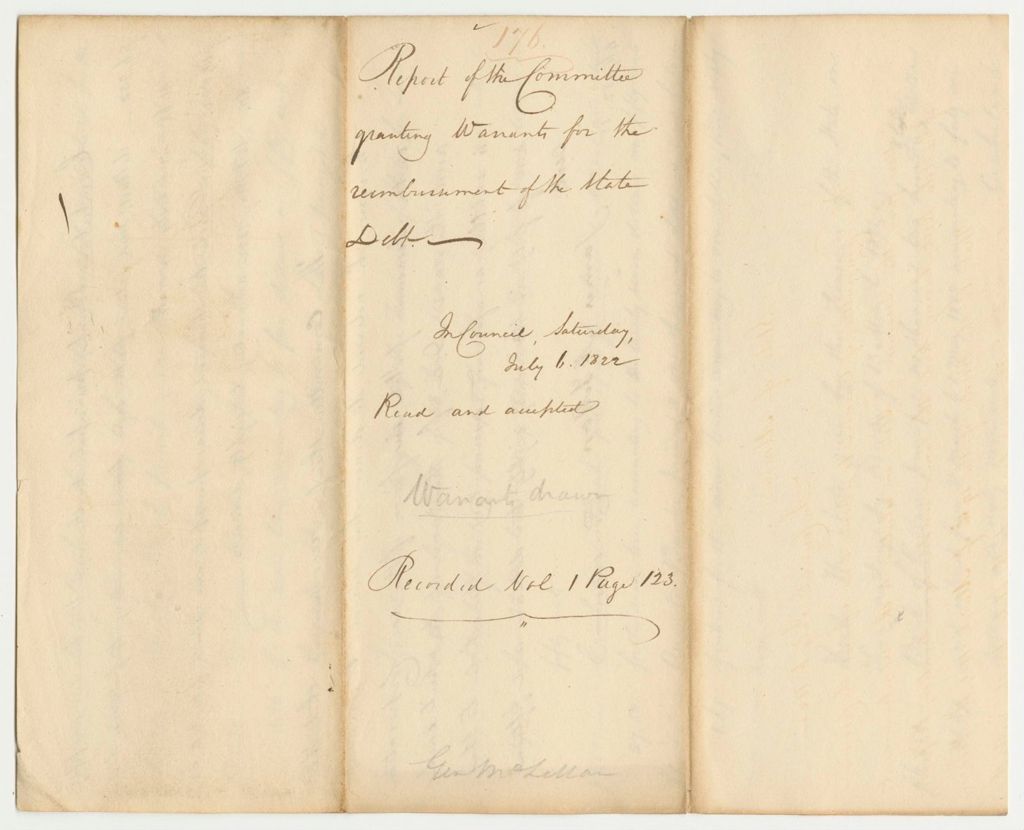 176.
Report of the Committee
granting Warrants for the
reimbursement of the State
Debt.
In Council, Saturday,
July 6. 1822
Read and accepted
Warrants drawn
Recorded Vol 1 Page 123.
Gen McLellan